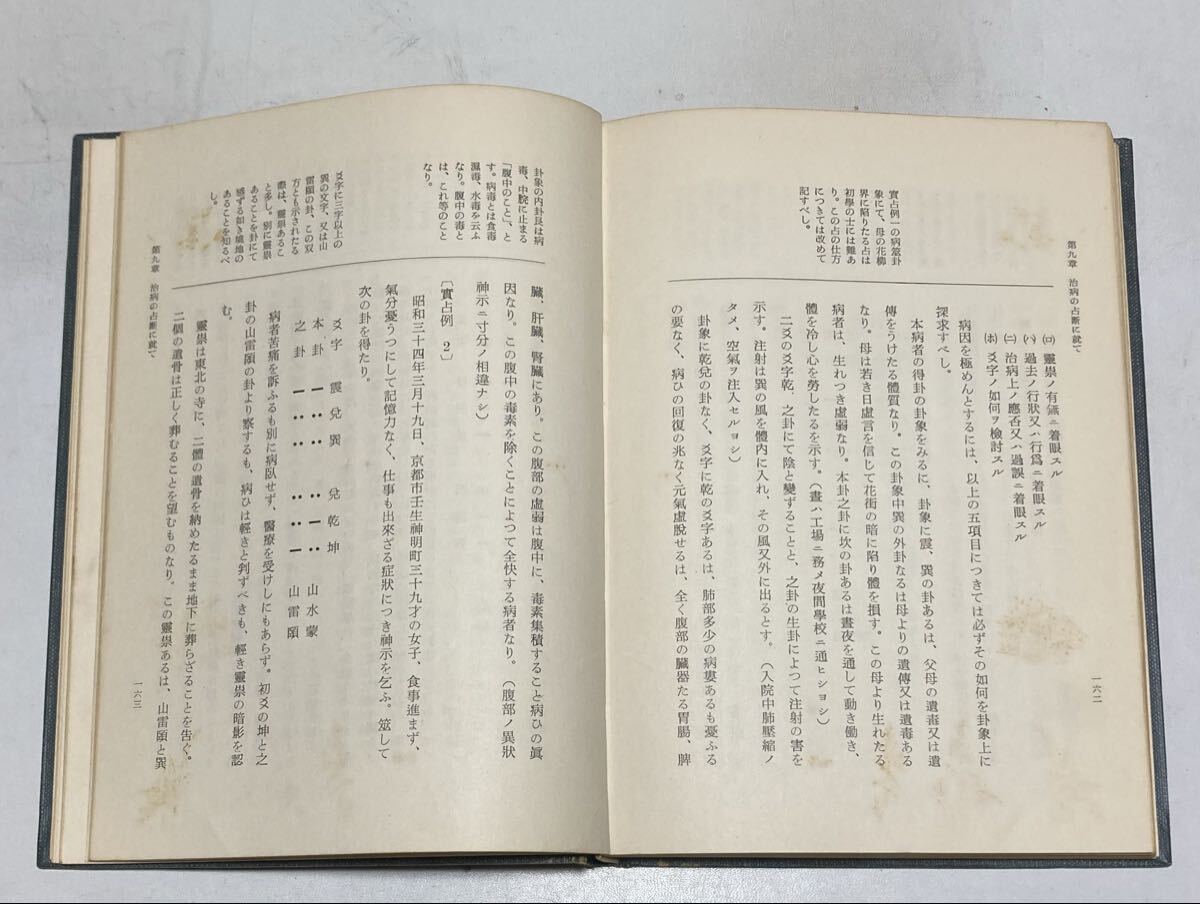 第九章　治病の占斷に就て
一六二
實占例一の病筮卦
象にて、母の花柳
界に陷りたる占は
初學の士には難あ
り。この占の仕方
につきては改めて
記すべし。
㈡ 靈祟ノ有無ニ着眼スル
㈥ 過去ノ行狀又ハ行爲ニ着眼スル
㈡ 治病上ノ應否又ハ過誤ニ着眼スル
㈭ 爻字ノ如何ヲ檢討スル
病因を極めんとするには、以上の五項目につきては必ずその如何を卦象上に
探求すべし。
本病者の得卦の卦象をみるに、卦象に震、巽の卦あるは、父母の遺毒又は遺
傳をうけたる體質なり。この卦象中巽の外卦なるは母よりの遺傳又は遺毒ある
なり。母は若き日虛言を信じて花街の暗に陷り體を損す。この母より生れたる
病者は、生れつき虛弱なり。本卦之卦に坎の卦あるは晝夜を通して動き働き、
體を冷し心を勞したるを示す。（晝ハ工場ニ務メ夜間學校ニ通ヒショシ）
二爻の爻字乾、之卦にて陰と變ずることと、之卦の生卦によつて注射の害を
示す。注射は巽の風を體內に入れ、その風又外に出るとす。（入院中肺壓縮ノ
タメ、空氣ヲ注入セルヨシ）
卦象に乾兌の卦なく、爻字に乾の爻字あるは、肺部多少の病婁あるも憂ふる
の要なく、病ひの回復の兆なく元氣虛脫せるは、全く腹部の臟器たる胃腸、脾
卦象の內卦艮は病
毒、中脘に止まる
「腹中のこと」、と
す。病毒とは食毒
濕毒、水毒を云ふ
なり。腹中の毒と
は、これ等のこと
なり。
爻字に三字以上の
巽の文字、又は山
雷頤の卦、この双
方とも示されたる
際は、靈祟あるこ
と多し。別に靈祟
あることを卦にて
感ずる如き境地の
あることを知るべ
し。
臟、肝臟、腎臟にあり。この腹部の虛弱は腹中に、毒素集積すること病ひの眞
因なり。この腹中の毒素を除くことによつて全快する病者なり。（腹部ノ異狀
神示ニ寸分ノ相違ナシ）
〔實占例　２〕
昭和三十四年三月十九日、京都市壬生神明町三十九才の女子、食事進まず、
氣分憂うつにして記憶力なく、仕事も出來ざる症狀につき神示を乞ふ。筮して
次の卦を得たり。
爻字　震　兌　巽　兌　乾　坤
本卦　山水蒙
之卦　山雷頤
病者苦痛を訴ふるも別に病臥せず、醫療を受けしにもあらず。初爻の坤と之
卦の山雷頤の卦より察するも、病ひは輕きと判ずべきも、輕き靈祟の暗影を認
む。
靈祟は東北の寺に、二體の遺骨を納めたるまま地下に葬らざることを吿ぐ。
二個の遺骨は正しく葬むることを望むものなり。この靈祟あるは、山雷頤と巽
第九章　治病の占斷に就て
一六三